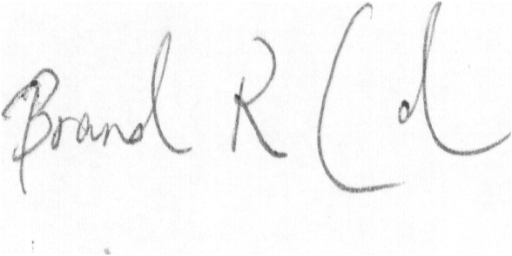 Brand R Cd